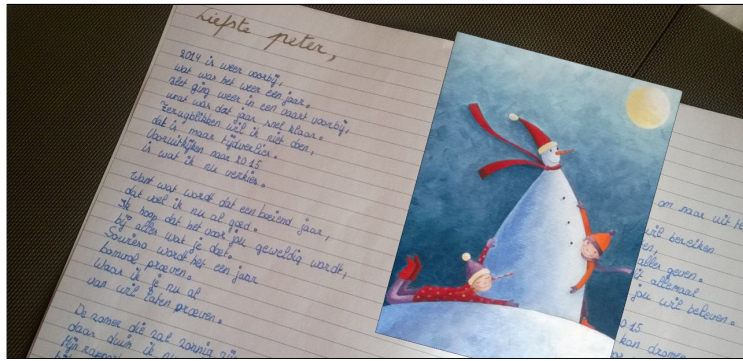 Liefste peter,
2014 is weer voorbij,
wat was het weer een jaar.
Het ging weer in een vaart voorbij,
wat was dat jaar snel klaar.
Terugblikken wil ik niet doen,
dat is maar tijdverlies.
Vooruitkijken naar 2015
is wat ik nu verkies.
Want wat wordt dat een boeiend jaar,
dat voel ik nu al goed.
Ik hoop dat het voor jou geweldig wordt,
bij alles wat je doet.
wordt het een jaar
bomvol proeven.
Waar ik je nu al
van wil laten proeven.
De zomer die zal zonnig zijn
daar duik ik
Mijn
om naar uit te
wil bereiken
aller geven.
ik allemaal
jou wil beleven.
2015
kan dromen